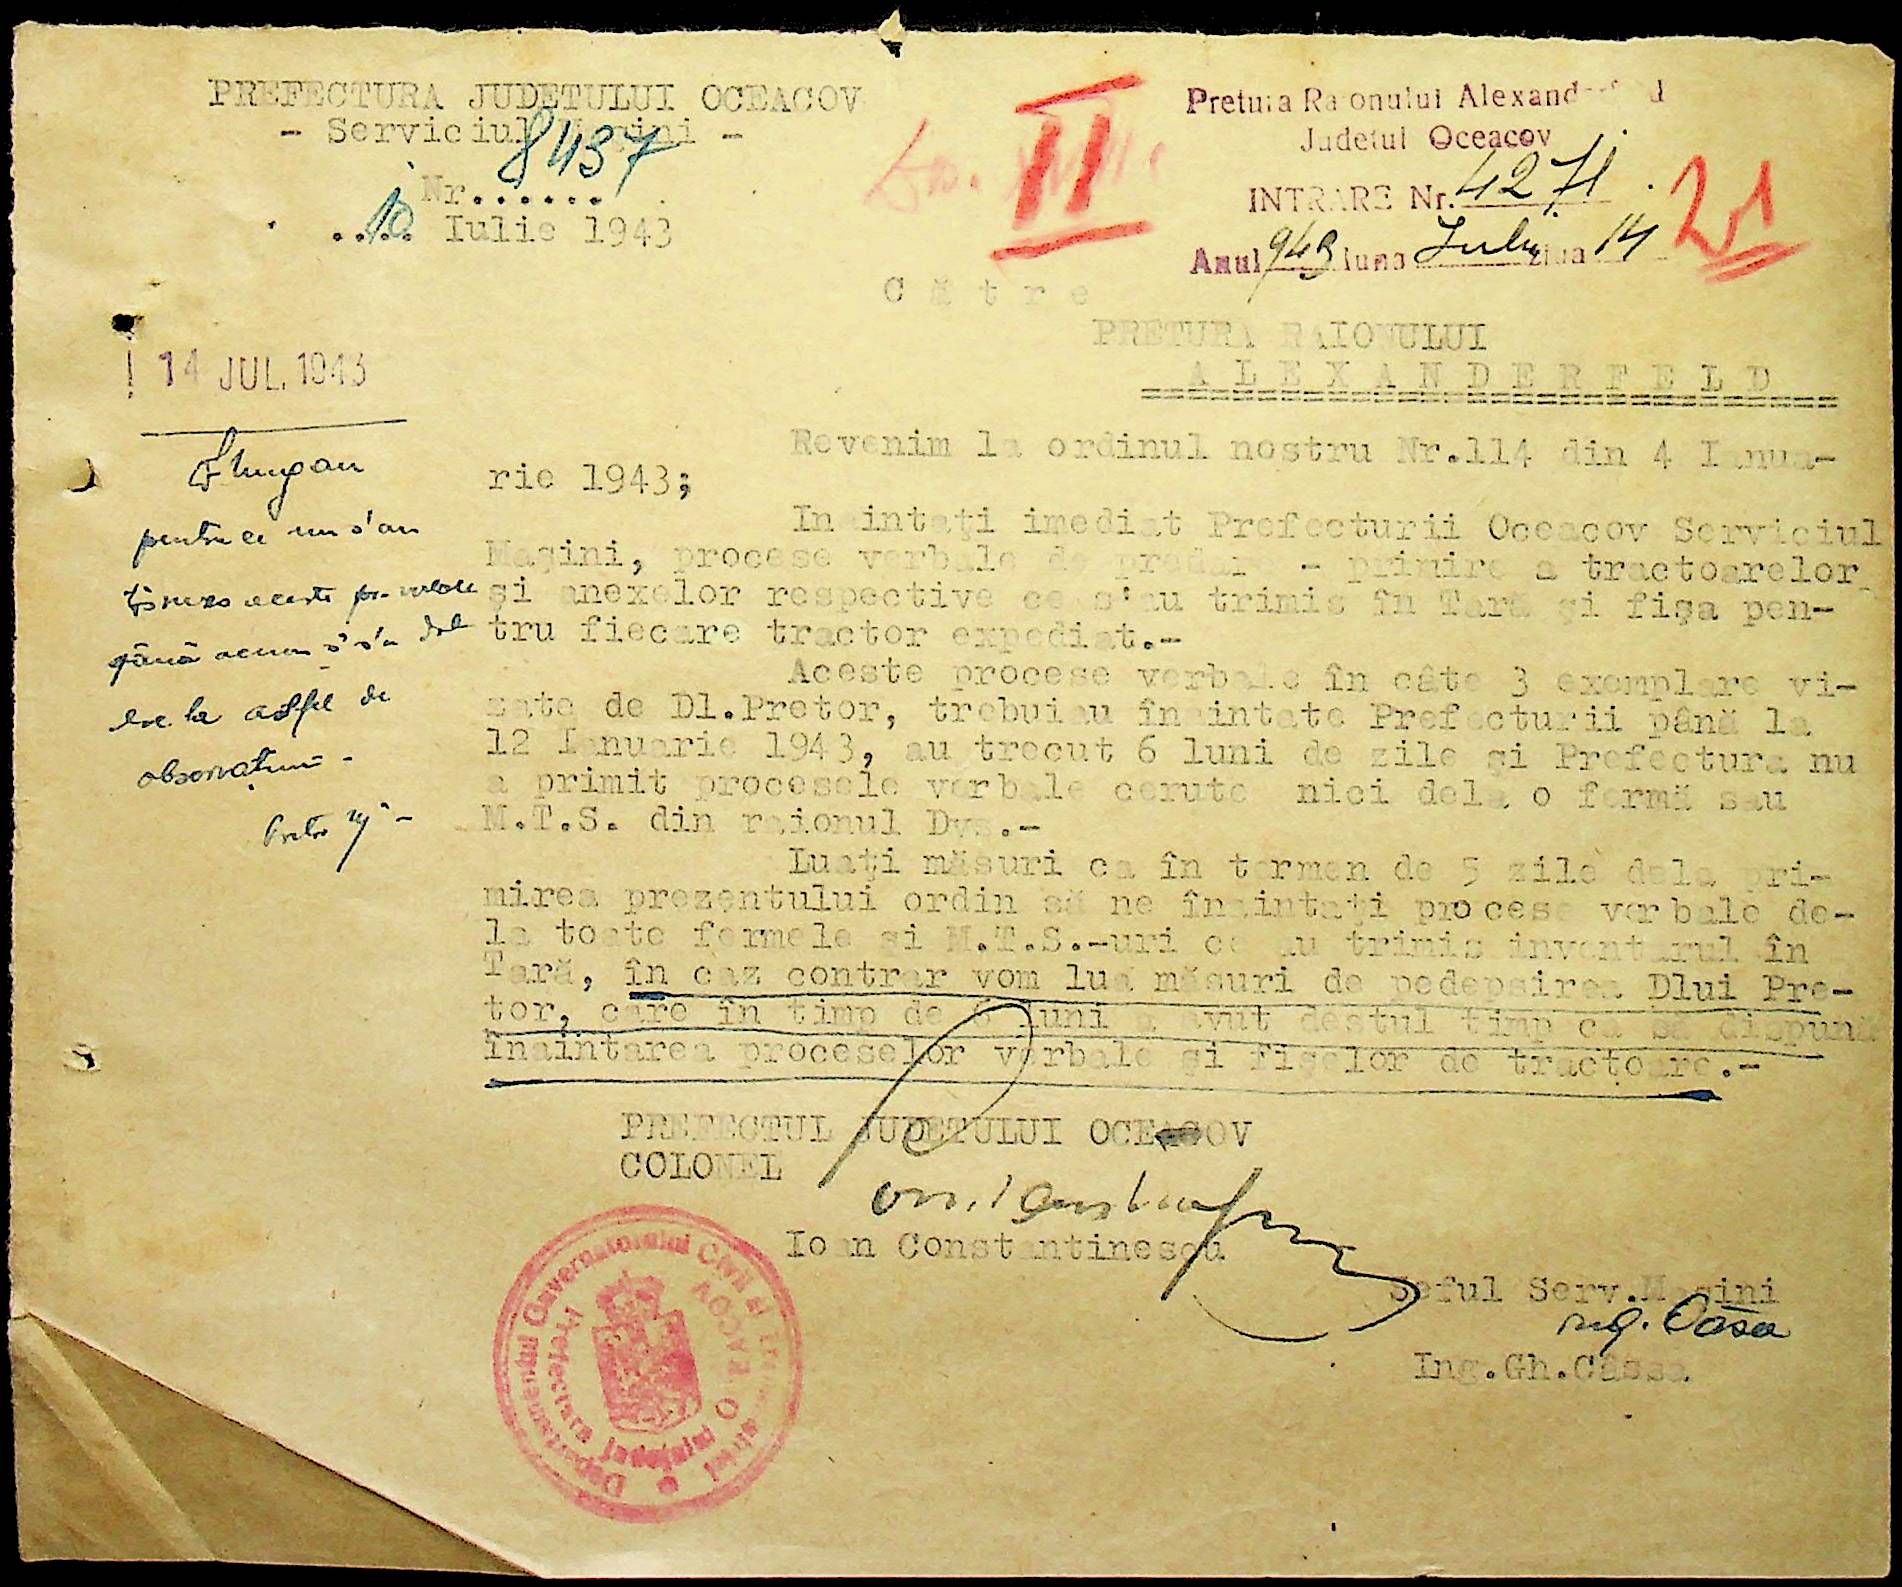 PREFECTURA JUDETULUI OCEACOV
- Serviciul Maşini -
Nr. 8437
10 Iulie 1943
II
Pretura Raionului Alexanderfeld
Judetul Oceacov
INTRARE Nr. 4271
Anul 943 luna Iulie ziua 14
21
Către
PRETURA RAIONULUI
ALEXANDERFELD
14 JUL. 1943
pentru ce nu s'au
până acum s'a dat
observațiuni -
Revenim la ordinul nostru Nr.114 din 4 Ianua-
rie 1943;
Inaintaţi imediat Prefecturii Oceacov Serviciul
Maşini, procese verbale de predare - primire a tractoarelor
şi anexelor respective ce s'au trimis în Tară şi fişa pen-
tru fiecare tractor expediat.-
Aceste procese verbale în câte 3 exemplare vi-
zate de Dl.Pretor, trebuiau înaintate Prefecturii până la
12 Ianuarie 1943, au trecut 6 luni de zile şi Prefectura nu
a primit procesele verbale cerute nici dela o fermă sau
M.T.S. din raionul Dvs.-
Luaţi măsuri ca în termen de 5 zile dela pri-
mirea prezentului ordin să ne înaintaţi procese verbale de-
la toate fermele si M.T.S.-uri ce au trimis inventarul în
Tară, în caz contrar vom lua măsuri de pedepsirea Dlui Pre-
tor, care în timp de 6 luni a avut destul timp ca să dispună
înaintarea proceselor verbale şi fişelor de tractoare.-
PREFECTUL JUDETULUI OCEACOV
COLONEL
Ioan Constantinescu
Seful Serv.Maşini
Ing.Gh.Câssa
Departamentul Guvernatorului Civil al Transnistriei
Prefectura Judeţului OCEACOV